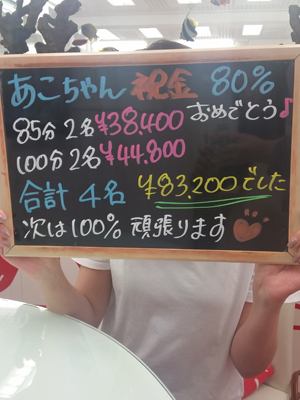 あこちゃん 祝金 80%
おめでとう♪
85分 2名 ¥38,400
100分 2名 ¥44,800
合計 4名 ¥83,200でした
次は100% 頑張ります